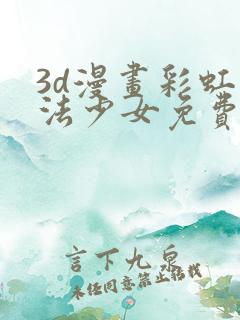 3d漫畫彩虹
法少女免費
言下九泉
未经同意禁止转载